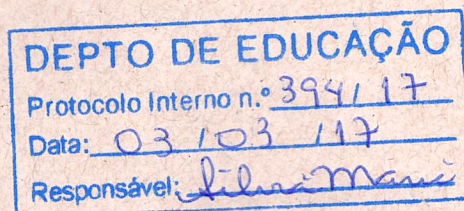 DEPTO DE EDUCAÇÃO
Protocolo Interno n.º 394/17
Data: 03/03/17
Responsável: